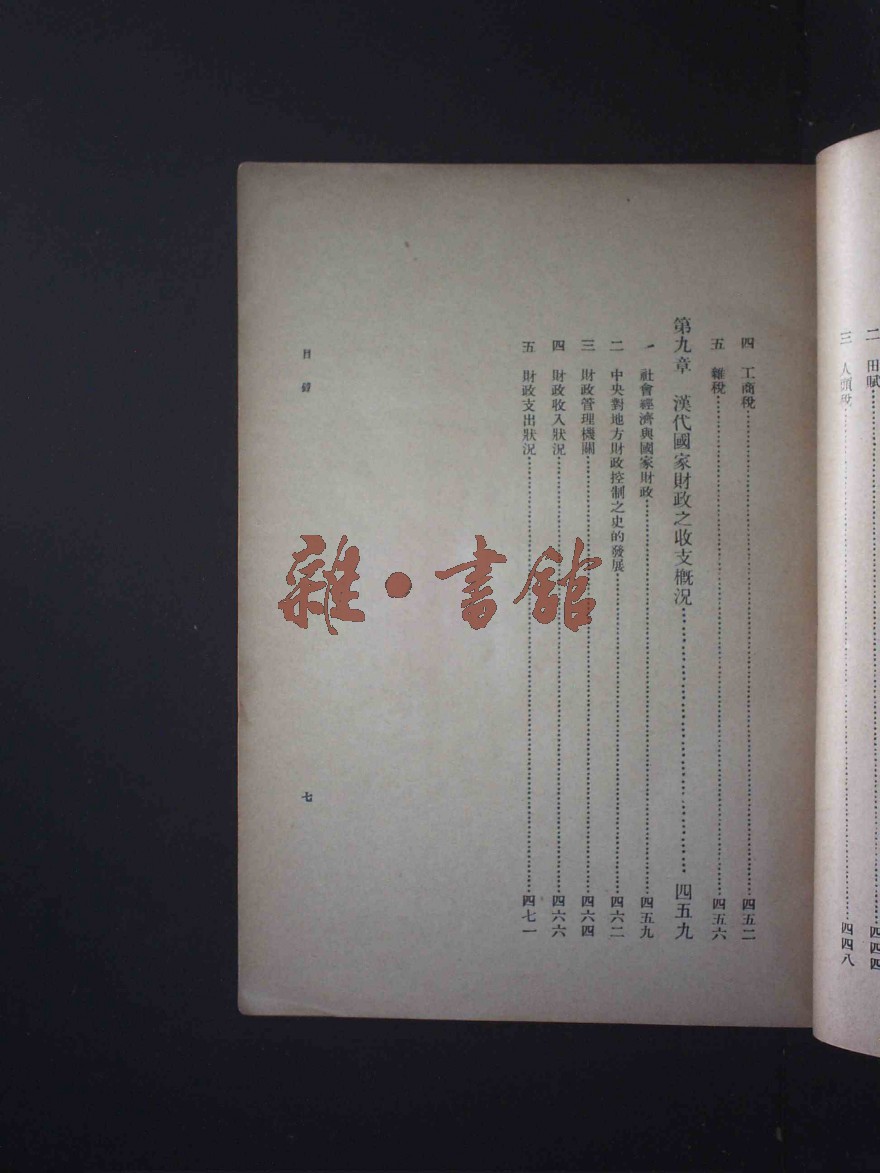 二 田賦……四四四
三 人頭稅……四四八
四 工商稅……四五二
五 雜稅……四五六
第九章 漢代國家財政之收支概況……四五九
一 社會經濟與國家財政……四五九
二 中央對地方財政控制之史的發展……四六二
三 財政管理機關……四六四
四 財政收入狀況……四六六
五 財政支出狀況……四七一
目錄
七
雜·書館